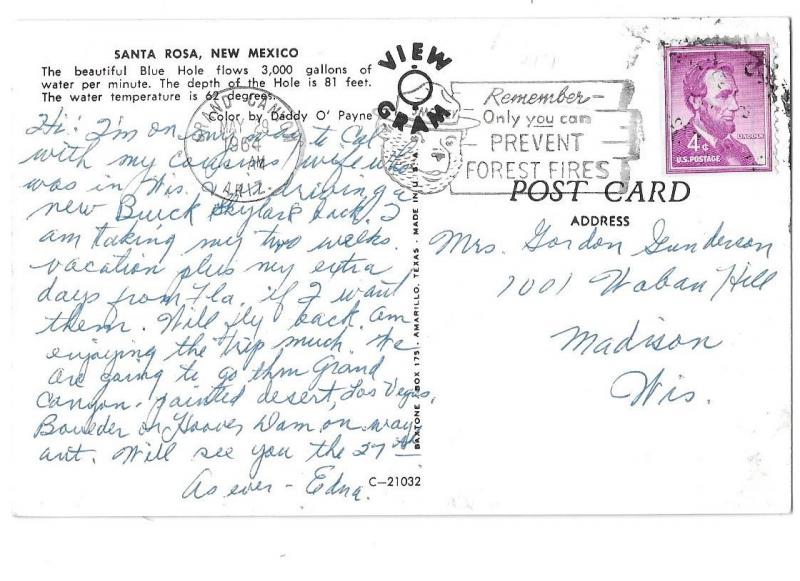 SANTA ROSA, NEW MEXICO
The beautiful Blue Hole flows 3,000 gallons of
water per minute. The depth of the Hole is 81 feet.
The water temperature is 62 degrees.
Color by Daddy O' Payne
VIEW
GRAM
GRAND CANYON
MAY 9
1964
PM
ARIZ.
Remember-
Only you can
PREVENT
FOREST FIRES
4¢
LINCOLN
U.S. POSTAGE
Hi! I'm on my way to Cal
with my cousins wife who
was in Wis. driving a
new Buick Skylark back. I
am taking my two weeks
vacation plus my extra
days from Fla. if I want
them. Will fly back. Am
enjoying the trip much. We
are going to go thru Grand
Canyon, painted desert, Las Vegas,
Boulder or Hoover Dam on way
out. Will see you the 27th
As ever - Edna.
BAXTONE - BOX 175 - AMARILLO, TEXAS - MADE IN U.S.A.
C-21032
POST CARD
ADDRESS
Mrs. Gordon Gunderson
1001 Waban Hill
Madison
Wis.